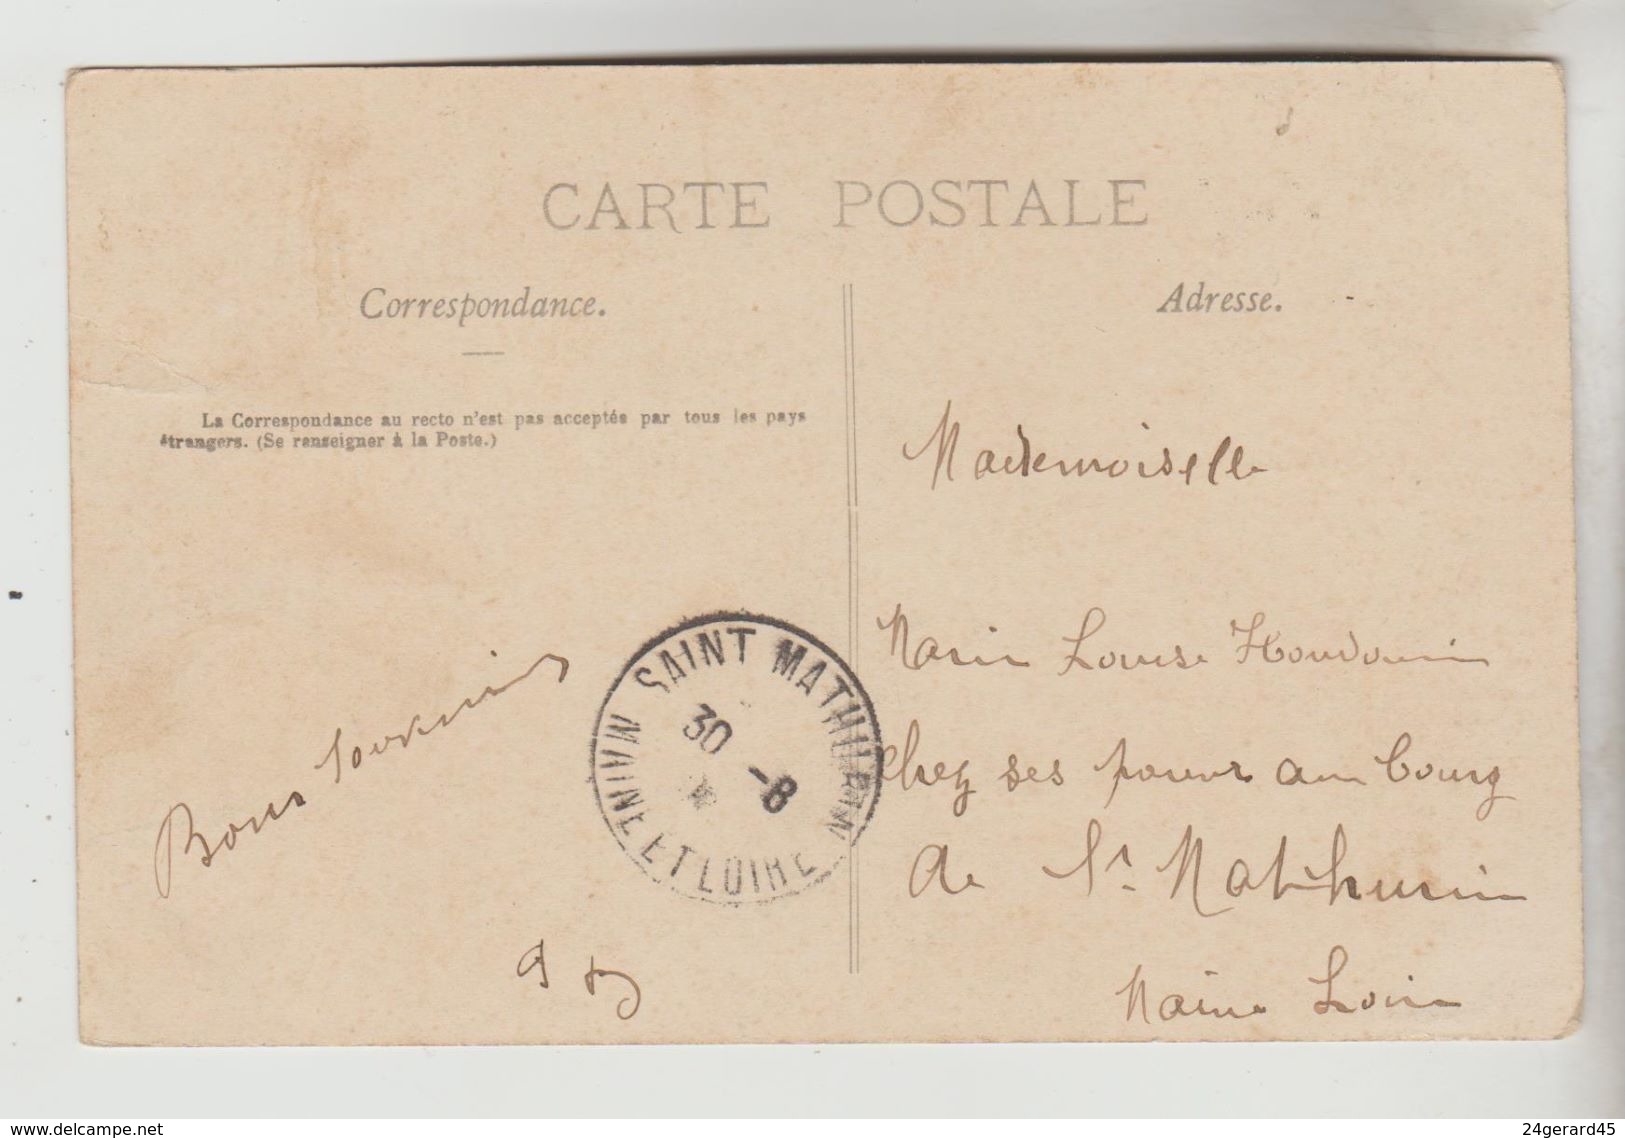 CARTE POSTALE
Correspondance.
Adresse.
La Correspondance au recto n'est pas acceptée par tous les pays
étrangers. (Se renseigner à la Poste.)
Mademoiselle
Marie Louise Houdouin
chez ses au bourg
de St Mathurin
Maine Loire
Bons souvenirs
SAINT MATHURIN
30 -8
MAINE ET LOIRE
www.delcampe.net
24gerard45